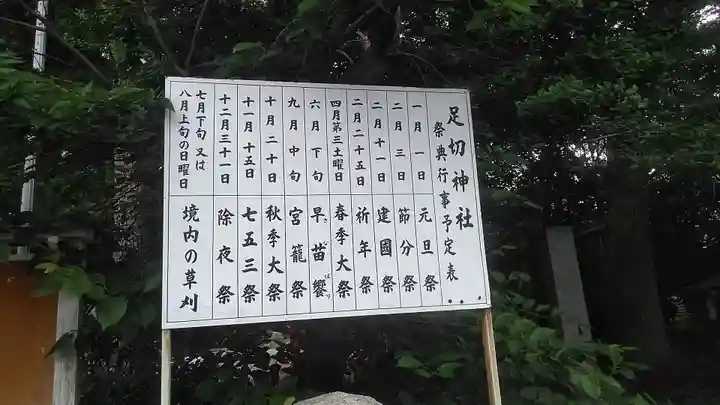 足切神社
祭典行事予定表
一月一日 元旦祭
二月三日 節分祭
二月十一日 建國祭
二月二十五日 祈年祭
四月第三土曜日 春季大祭
六月下旬 早苗饗
九月中旬 宮籠祭
十月二十日 秋季大祭
十一月十五日 七五三祭
十二月三十一日 除夜祭
七月下旬又は
八月上旬の日曜日 境内の草刈